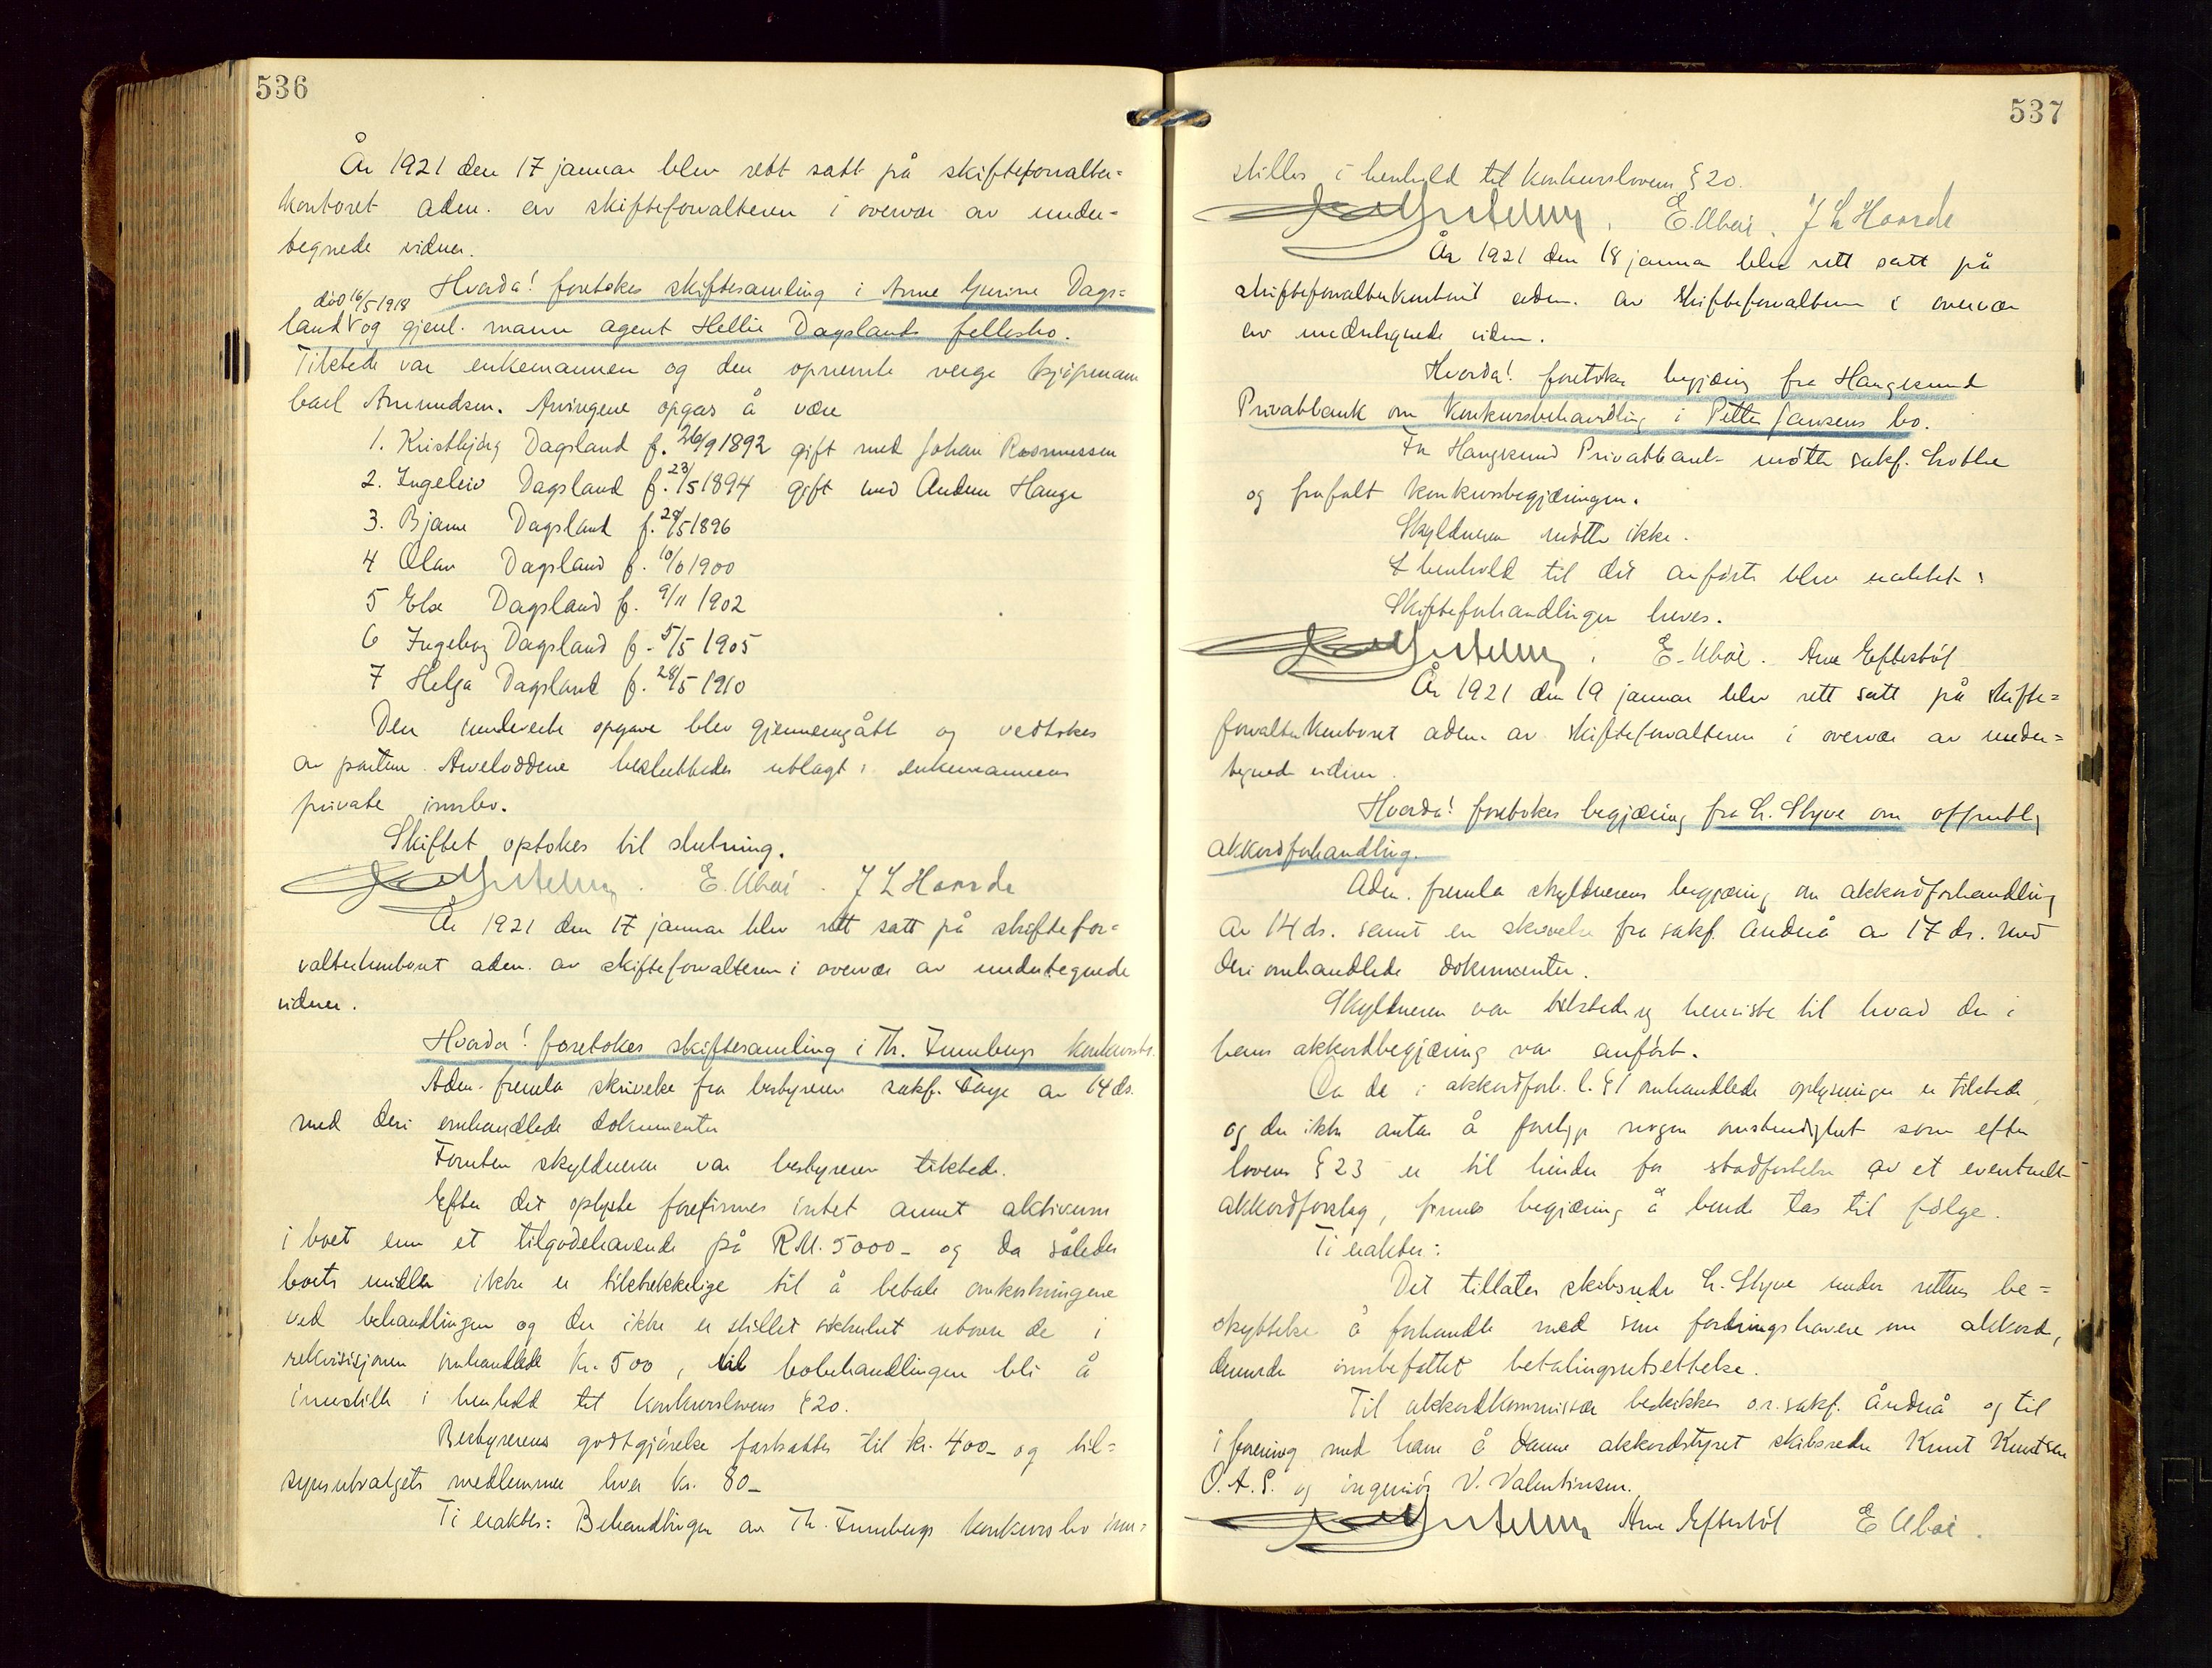 536
År 1921 den 17 januar blev rett satt på skifteforvalter=
kontoret adm. av skifteforvalteren i overvær av under=
tegnede vidner.
Hvorda! foretokes skiftesamling i Anne Gurine Dags=
død 16/5 1918
land og gjenl. mann agent Hellie Dagslands fellesbo.
Tilstede var enkemannen og den opnevnte verge kjøpmann
Carl Amundsen. Arvingene opgas å være
1. Kristbjørg Dagsland f. 26/9 1892 gift med Johan Rasmussen
2. Ingeleiv Dagsland f. 23/5 1894 gift med Anders Hauge
3. Bjarne Dagsland f. 29/5 1896
4 Olav Dagsland f. 10/6 1900
5 Else Dagsland f. 9/11 1902
6 Ingeborg Dagsland f. 5/5 1905
7 Helga Dagsland f. 28/5 1910
Den innleverte opgave blev gjennemgått og vedtokes
av partene. Arveloddene besluttedes utlagt i enkemannens
private innbo.
Skiftet optokes til slutning.
E. Ubøe. J L Haarde
År 1921 den 17 januar blev rett satt på skiftefor=
valterkontoret adm. av skifteforvalteren i overvær av undertegnede
vidner.
Hvorda! foretokes skiftesamling i Th. Funnbergs konkursbo.
Adm. fremla skrivelse fra bestyreren sakf. Tage av 14 ds.
med deri omhandlede dokumenter
Foruten skyldneren var bestyreren tilstede.
Efter det oplyste forefinnes intet annet aktivum
i boet enn et tilgodehavende på R.M. 5000- og da således
boets midler ikke er tilstrekkelige til å betale omkostningene
ved behandlingen og der ikke er stillet sikkerhet utover de i
rekvisisjonen omhandlede kr. 500, vil bobehandlingen bli å
innstille i henhold til konkurslovens § 20.
Bestyrerens godtgjørelse fastsattes til kr. 400- og til=
synsutvalgets medlemmer hver kr. 80-
Ti eraktes: Behandlingen av Th. Funnbergs konkursbo inn=
537
stilles i henhold til konkurslovens § 20.
E. Ubøe. J L Haarde
År 1921 den 18 januar blev rett satt på
skifteforvalterkontoret adm. av skifteforvalteren i overvær
av undertegnede vidner.
Hvorda! foretokes begjæring fra Haugesund
Privatbank om konkursbehandling i Petter Jansens bo.
For Haugesund Privatbank møtte sakf.
og frafalt konkursbegjæringen.
Skyldneren møtte ikke.
I henhold til det anførte blev eraktet:
Skifteforhandlingen heves.
E. Ubøe. Arne Eftestøl
År 1921 den 19 januar blev rett satt på skifte=
forvalterkontoret adm. av skifteforvalteren i overvær av under=
tegnede vidner.
Hvorda! foretokes begjæring fra L. Styve om offentlig
akkordforhandling.
Adm. fremla skyldnerens begjæring om akkordforhandling
av 14 ds. samt en skrivelse fra sakf. Åndnå av 17 ds. med
deri omhandlede dokumenter.
Skyldneren var tilstede og henviste til hvad der i
hans akkordbegjæring var anført.
Da de i akkordforh. l. § 1 omhandlede oplysninger er tilstede,
og der ikke antas å foreligge nogen omstendighet som efter
lovens § 23 er til hinder for stadfestelse av et eventuelt
akkordforslag, finnes begjæring å burde tas til følge.
Ti eraktes:
Det tillates skibsreder L. Styve under rettens be=
skyttelse å forhandle med sine fordringshavere om akkord,
derunder innbefattet betalingsutsettelse.
Til akkordkommissær beskikkes o.r.sakf. Åndnå og til
i forening med ham å danne akkordstyret skibsreder Knut Knutsen
O.A.S. og ingeniør V. Valentinsen.
Arne Eftestøl E Ubøe.